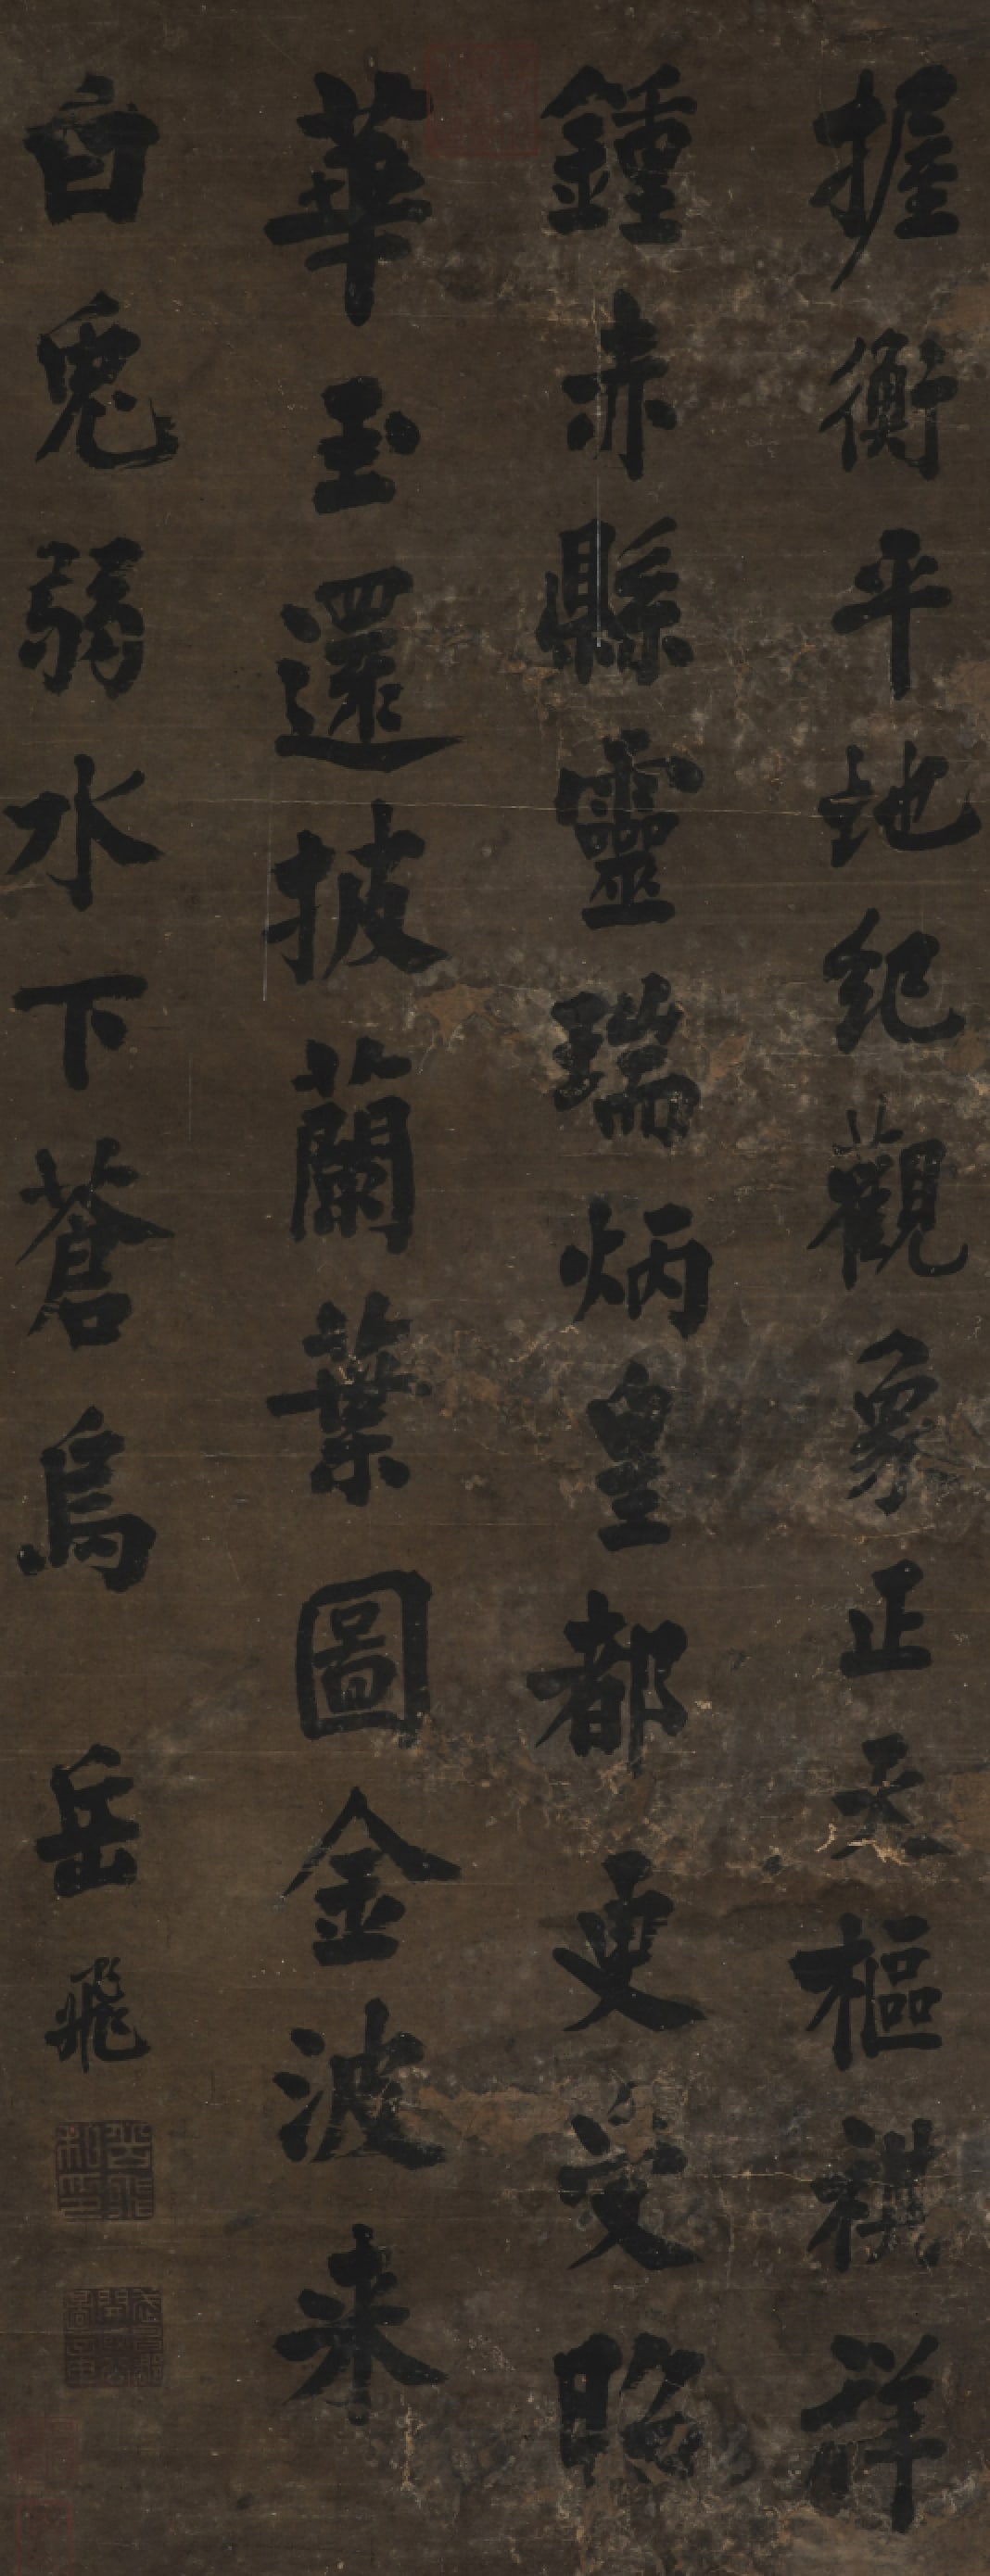 握衡平地紀觀象正天樞祺祥
鍾赤縣靈瑞炳皇都更文昭
華玉還披蘭葉圖金波来
白兎弱水下蒼烏
岳飛